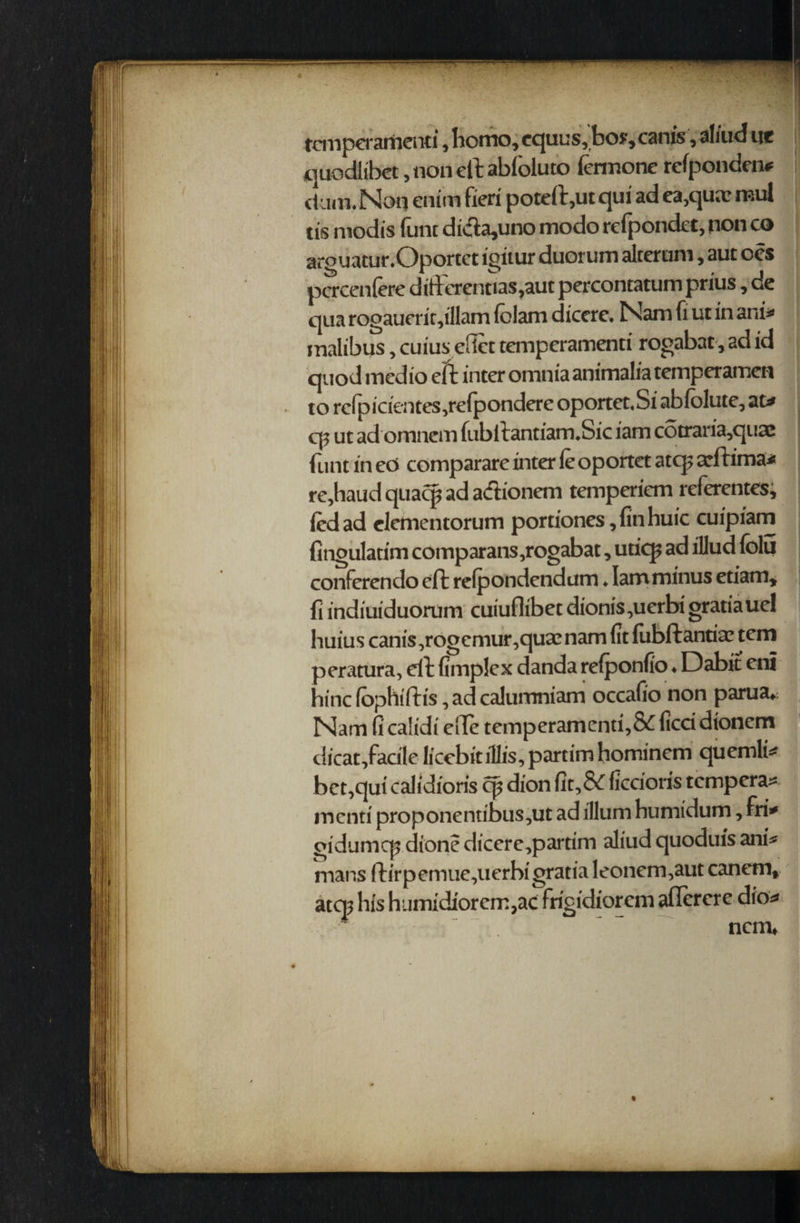 temperamenti, homo, equus, bos, canis, aliud ut
quodlibet, non eſt abſoluto ſermone reſponden⸗
dum. Non enim fieri poteſt, ut qui ad ea, quæ mul
tis modis ſunt dicta, uno modo reſpondet, non co
arguatur. Oportet igitur duorum alterum, aut oẽs
percenſere differentias, aut percontatum prius, de
qua rogauerit, illam ſolam dicere. Nam ſi ut in ani⸗
malibus, cuius eſſet temperamenti rogabat, ad id
quod medio eſt inter omnia animalia temperamen
to reſpicientes, reſpondere oportet. Si abſolute, at⸗
q̃ ut ad omnem ſubſtantiam. Sic iam cõtraria, quæ
ſunt in eo comparare inter ſe oportet atq̃ æſtima⸗
re, haud quaq̃ ad actionem temperiem referentes,
ſed ad elementorum portiones, ſin huic cuipiam
ſingulatim comparans, rogabat, utiq̃ ad illud ſolũ
conferendo eſt reſpondendum. Iam minus etiam,
ſi indiuiduorum cuiuſlibet dionis, uerbi gratia uel
huius canis, rogemur, quæ nam ſit ſubſtantiæ tem
peratura, eſt ſimplex danda reſponſio. Dabit eni
hinc ſophiſtis, ad calumniam occaſio non parua.
Nam ſi calidi eſſe temperamenti, & ſicci dionem
dicat, facile licebit illis, partim hominem quemli⸗
bet, qui calidioris q̃ dion ſit, & ſiccioris tempera⸗
menti proponentibus, ut ad illum humidum, fri⸗
gidumq̃ dionẽ dicere, partim aliud quoduis ani⸗
mans ſtirpemue, uerbi gratia leonem, aut canem,
atq̃ his humidiorem, ac frigidiorem aſſerere dio⸗
nem.